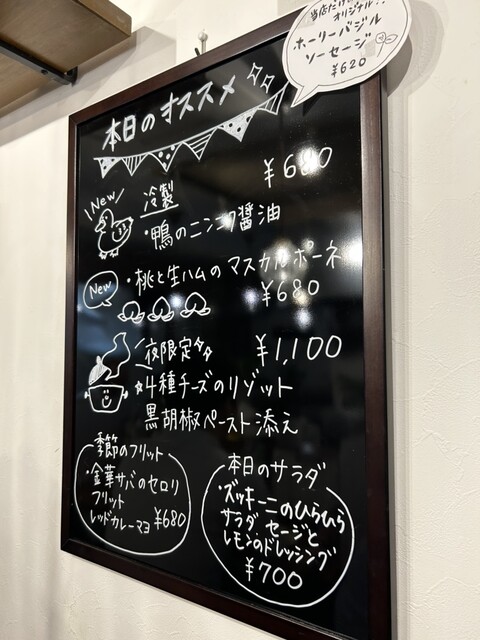 当店だけの
オリジナル!!
ホーリーバジル
ソーセージ
¥620
本日のオススメ
New
冷製 ¥680
・鴨のニンニク醤油
New
・桃と生ハムのマスカルポーネ
¥680
夜限定 ¥1,100
☆4種チーズのリゾット
黒胡椒ペースト添え
季節のフリット
・金華サバのセロリ
フリット
レッドカレーマヨ ¥680
本日のサラダ
・ズッキーニのひらひら
サラダ セージと
レモンのドレッシング
¥700